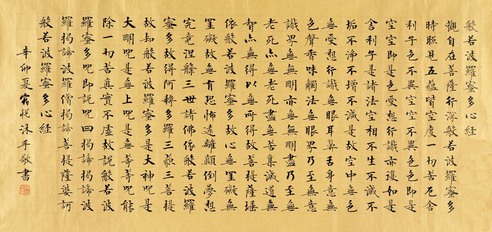 般若波羅蜜多心經
觀自在菩薩行深般若波羅蜜多
時照見五蘊皆空度一切苦厄舍
利子色不異空空不異色色即是
空空即是色受想行識亦復如是
舍利子是諸法空相不生不滅不
垢不淨不增不減是故空中無色
無受想行識無眼耳鼻舌身意無
色聲香味觸法無眼界乃至無意
識界無無明亦無無明盡乃至無
老死亦無老死盡無苦集滅道無
智亦無得以無所得故菩提薩埵
依般若波羅蜜多故心無罣礙無
罣礙故無有恐怖遠離顛倒夢想
究竟涅槃三世諸佛依般若波羅
蜜多故得阿耨多羅三藐三菩提
故知般若波羅蜜多是大神咒是
大明咒是無上咒是無等等咒能
除一切苦真實不虛故說般若波
羅蜜多咒即說咒曰揭諦揭諦波
羅揭諦波羅僧揭諦菩提薩婆訶
般若波羅蜜多心經
辛卯夏沐手敬書